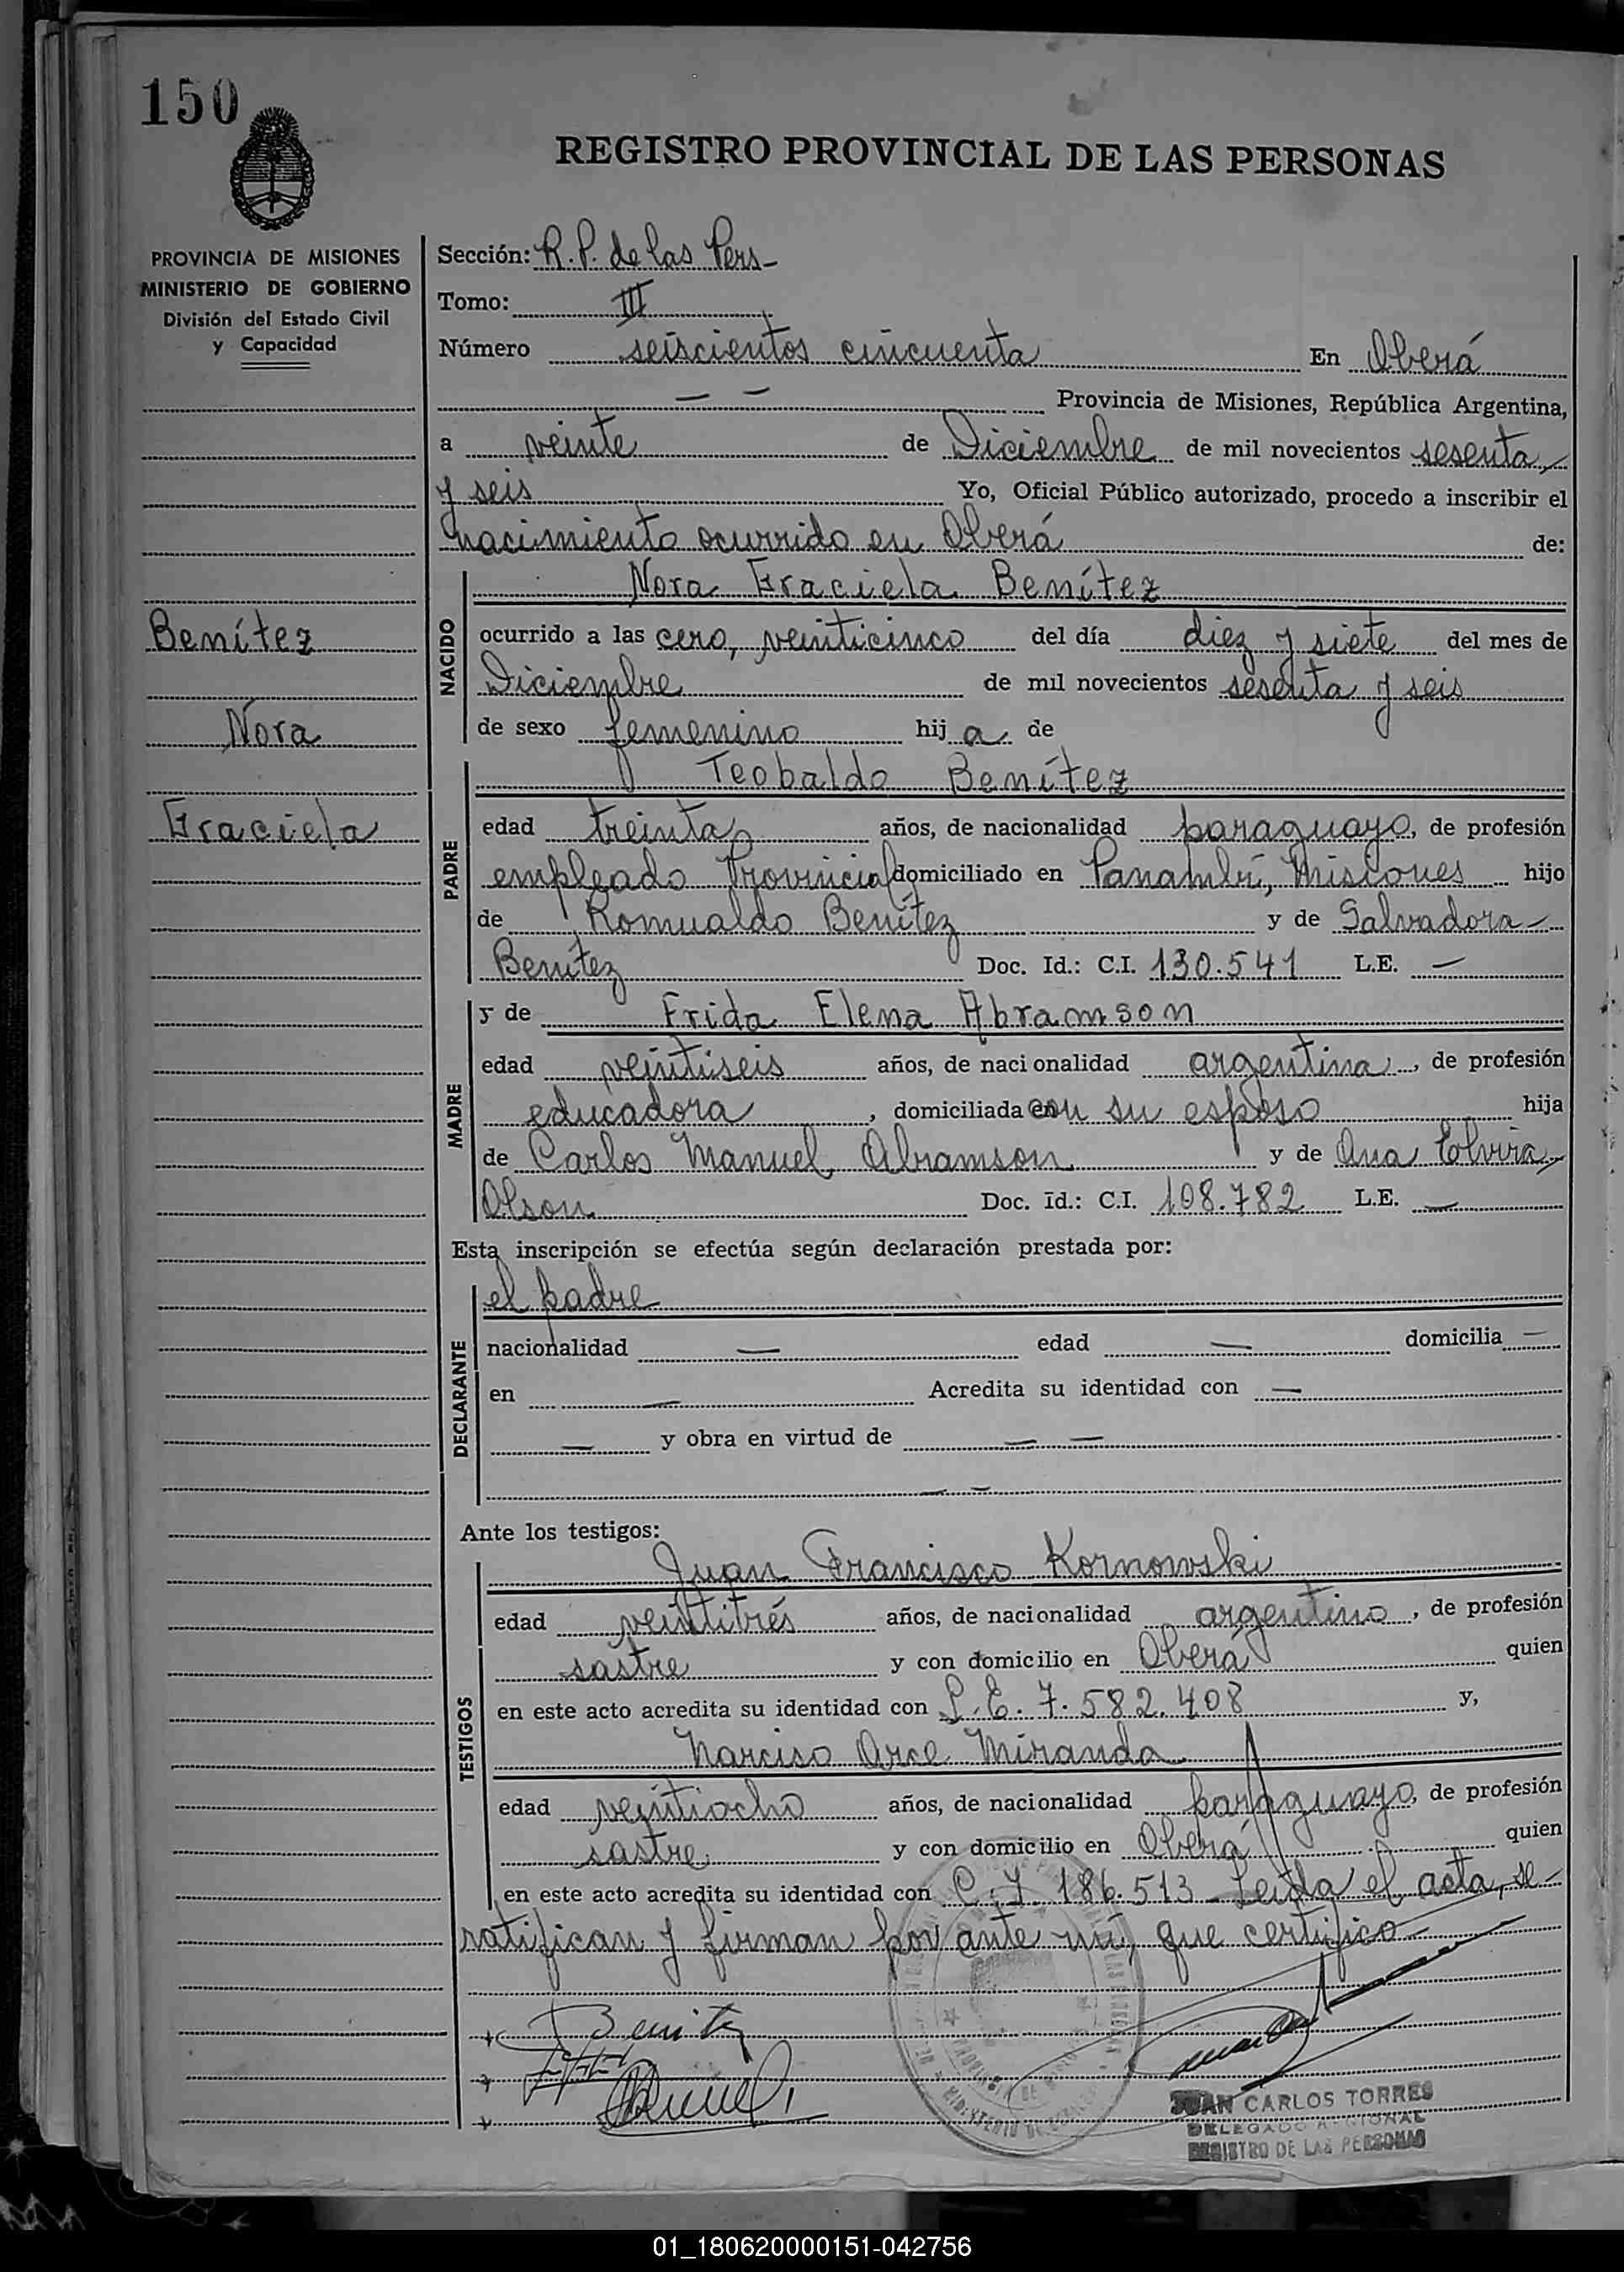 150
REGISTRO PROVINCIAL DE LAS PERSONAS
PROVINCIA DE MISIONES
MINISTERIO DE GOBIERNO
División del Estado Civil
y Capacidad
Benítez
Nora
Graciela
Sección: R.P. de las Pers-
Tomo: III
Número seiscientos cincuenta En Oberá
— — Provincia de Misiones, República Argentina,
a veinte de Diciembre de mil novecientos sesenta
y seis Yo, Oficial Público autorizado, procedo a inscribir el
nacimiento ocurrido en Oberá de:
NACIDO
Nora Graciela Benítez
ocurrido a las cero, veinticinco del día diez y siete del mes de
Diciembre de mil novecientos sesenta y seis
de sexo femenino hij a de
PADRE
Teobaldo Benítez
edad treinta años, de nacionalidad paraguayo, de profesión
empleado Provincial domiciliado en Panambí, Misiones hijo
de Romualdo Benítez y de Salvadora
Benítez Doc. Id.: C.I. 130.541 L.E. —
MADRE
y de Frida Elena Abramson
edad veintiseis años, de nacionalidad argentina, de profesión
educadora, domiciliada con su esposo hija
de Carlos Manuel Abramson y de Ana Elvira
Olson Doc. Id.: C.I. 108.782 L.E. —
Esta inscripción se efectúa según declaración prestada por:
DECLARANTE
el padre
nacionalidad — edad — domicilia —
en — Acredita su identidad con —
— y obra en virtud de — —
— —
Ante los testigos:
TESTIGOS
Juan Francisco Kornowski
edad veintitrés años, de nacionalidad argentino, de profesión
sastre y con domicilio en Oberá quien
en este acto acredita su identidad con L.E. 7.582.408 y,
Narciso Arce Miranda
edad veintiocho años, de nacionalidad paraguayo, de profesión
sastre y con domicilio en Oberá quien
en este acto acredita su identidad con C.I. 186.513 - Leída el acta, se
ratifican y firman por ante mí, que certifico -
Benitez
JUAN CARLOS TORRES
DELEGADO
REGISTRO DE LAS PERSONAS
01_180620000151-042756